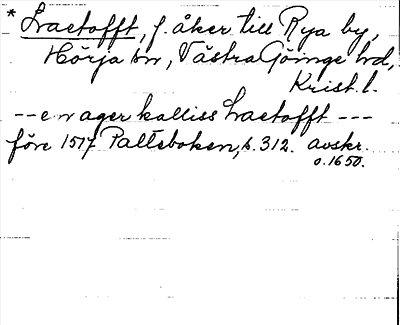 * Lraetofft, f. åker till Rya by,
Hörja sn, Västra Göinge hd,
Krist. l.
-- e n ager kalliss Lraetofft ---
före 1517 Palteboken, s. 312. avskr.
o. 1650.